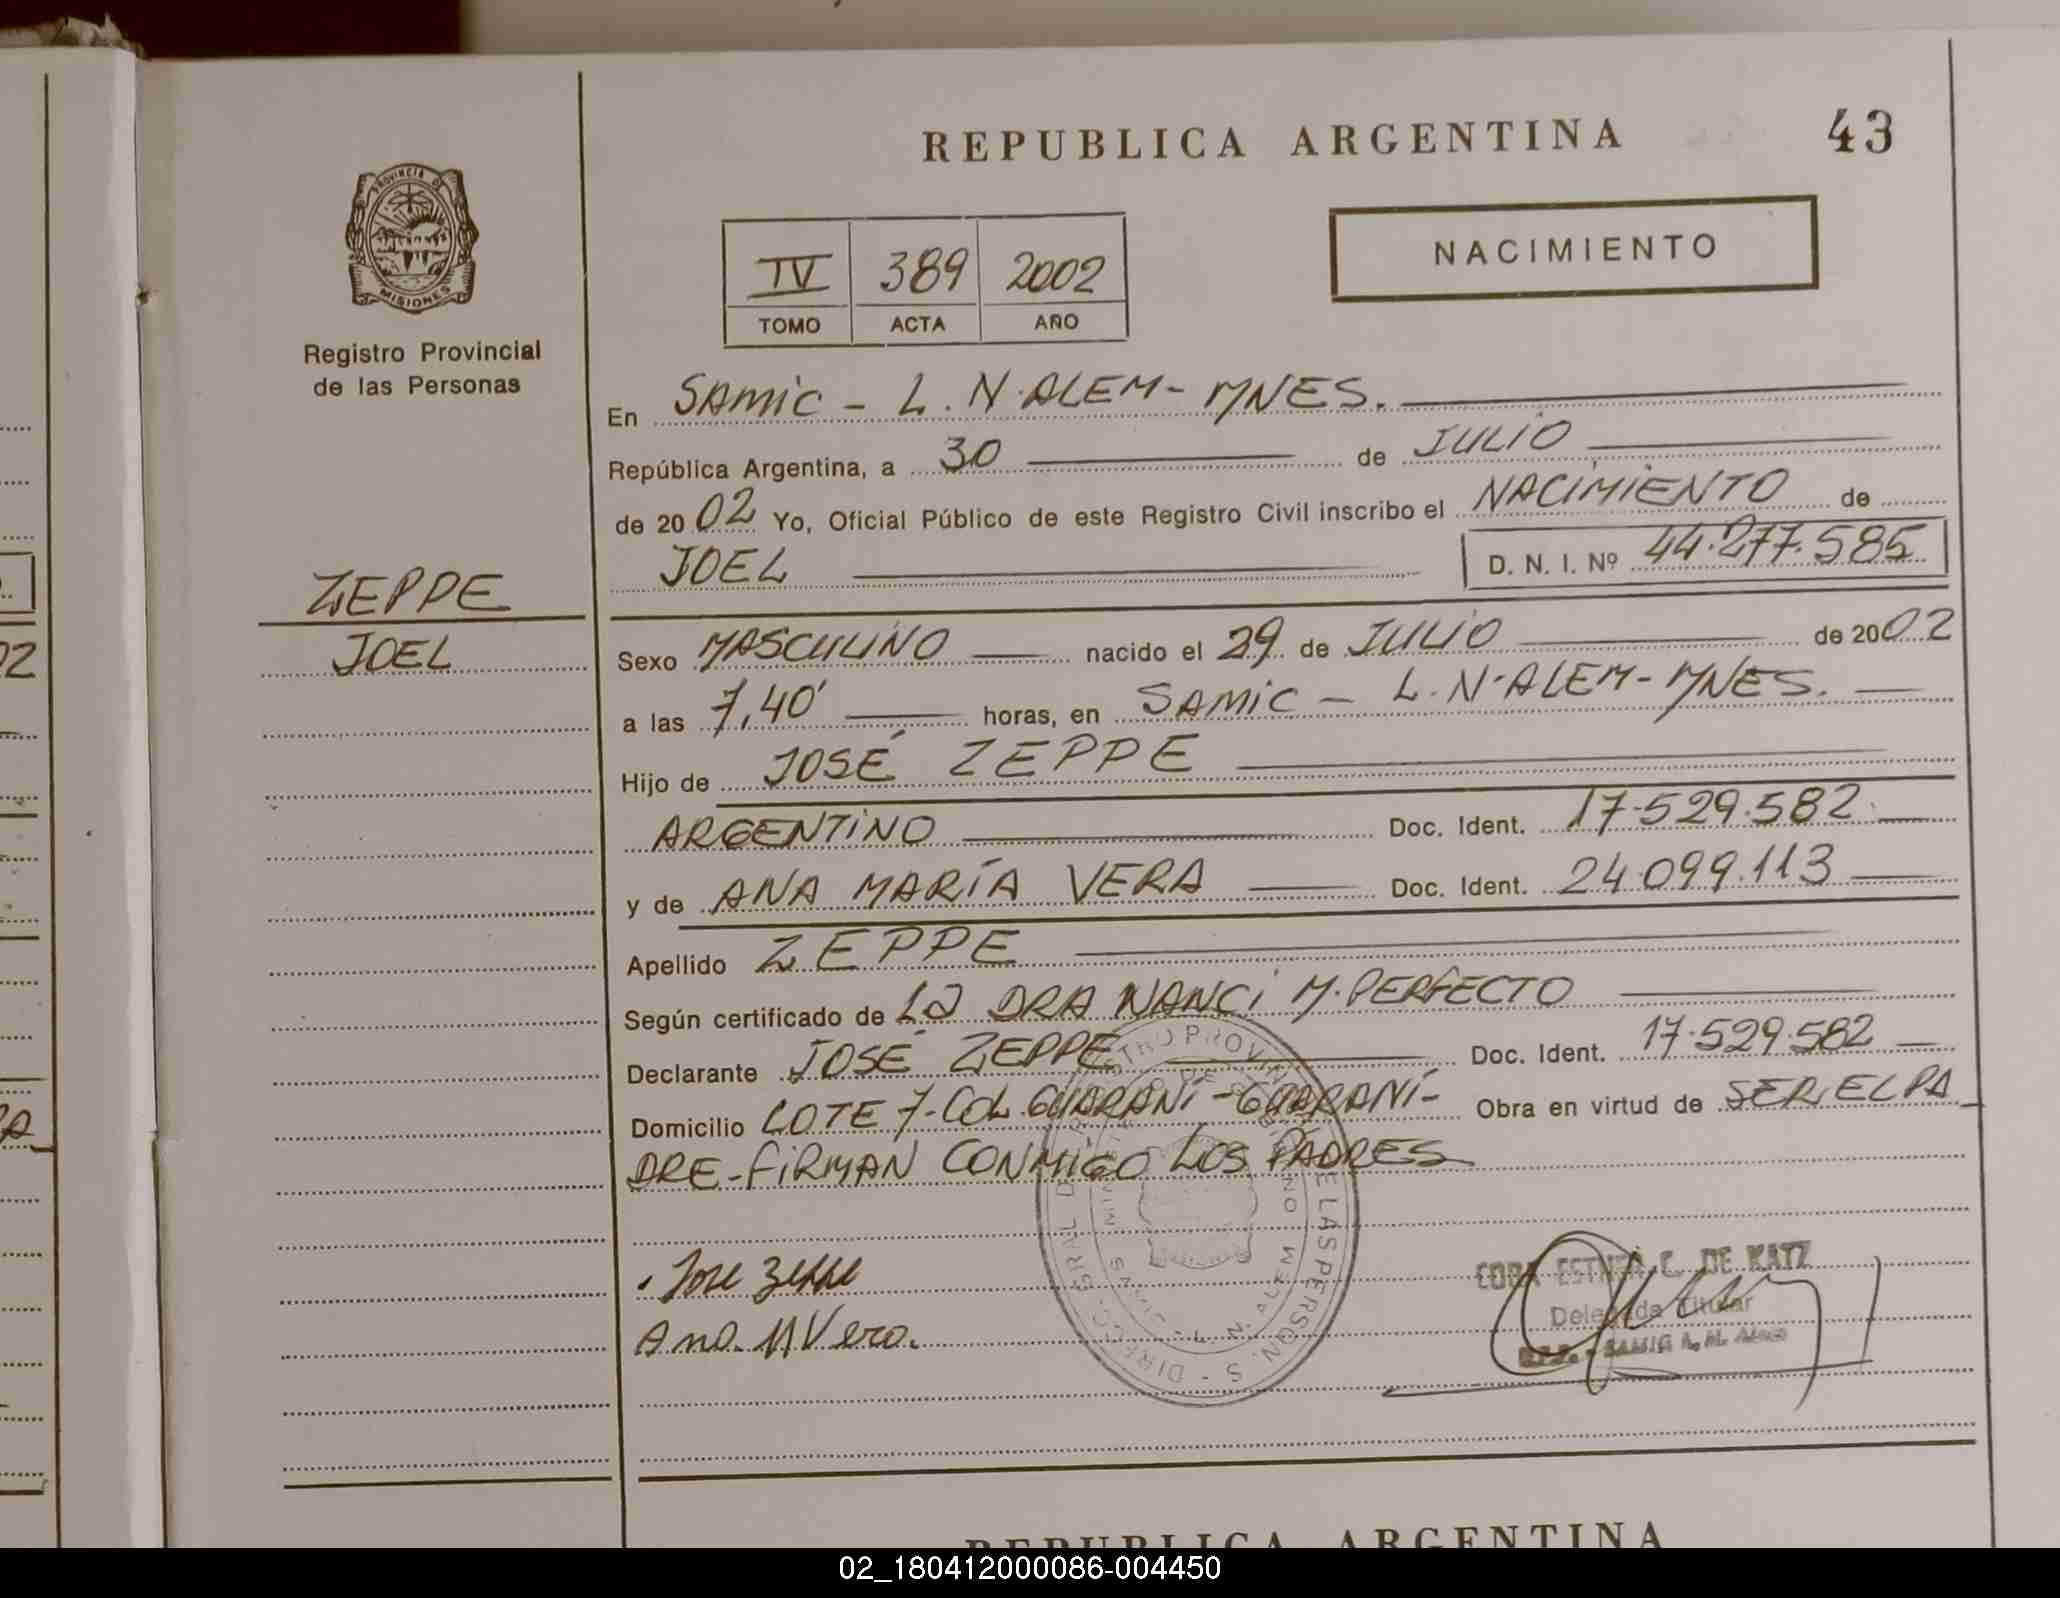 REPUBLICA ARGENTINA 43
PROVINCIA DE
MISIONES
Registro Provincial
de las Personas
NACIMIENTO
IV 389 2002
TOMO ACTA AÑO
En SAMIC - L. N. ALEM - MNES.
República Argentina, a 30 de JULIO
de 2002 Yo, Oficial Público de este Registro Civil inscribo el NACIMIENTO de
JOEL D. N. I. Nº 44.277.585
ZEPPE
JOEL
Sexo MASCULINO nacido el 29 de JULIO de 2002
a las 7,40' horas, en SAMIC - L. N. ALEM - MNES.
Hijo de JOSÉ ZEPPE
ARGENTINO Doc. Ident. 17.529.582
y de ANA MARÍA VERA Doc. Ident. 24.099.113
Apellido ZEPPE
Según certificado de La DRA NANCI M. PERFECTO
Declarante JOSÉ ZEPPE Doc. Ident. 17.529.582
Domicilio LOTE 7-COL. GUARANÍ-GUARANÍ- Obra en virtud de SER EL PA
DRE-FIRMAN CONMIGO LOS PADRES
Jose Zeppe
Ana. M Vera.
ESTHER C. DE KATZ
Delegada Titular
REPUBLICA ARGENTINA
02_180412000086-004450